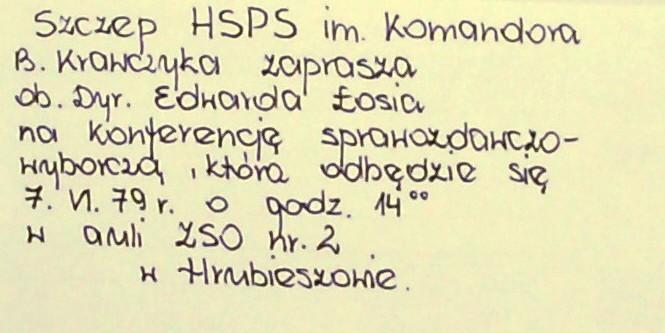 Szczep HSPS im. Komandora
B. Krawczyka zaprasza
ob. Dyr. Edwarda Łosia
na konferencję sprawozdawczo-
wyborczą, która odbędzie się
7. VI. 79 r. o godz. 14⁰⁰
w auli ZSO nr. 2
w Hrubieszowie.